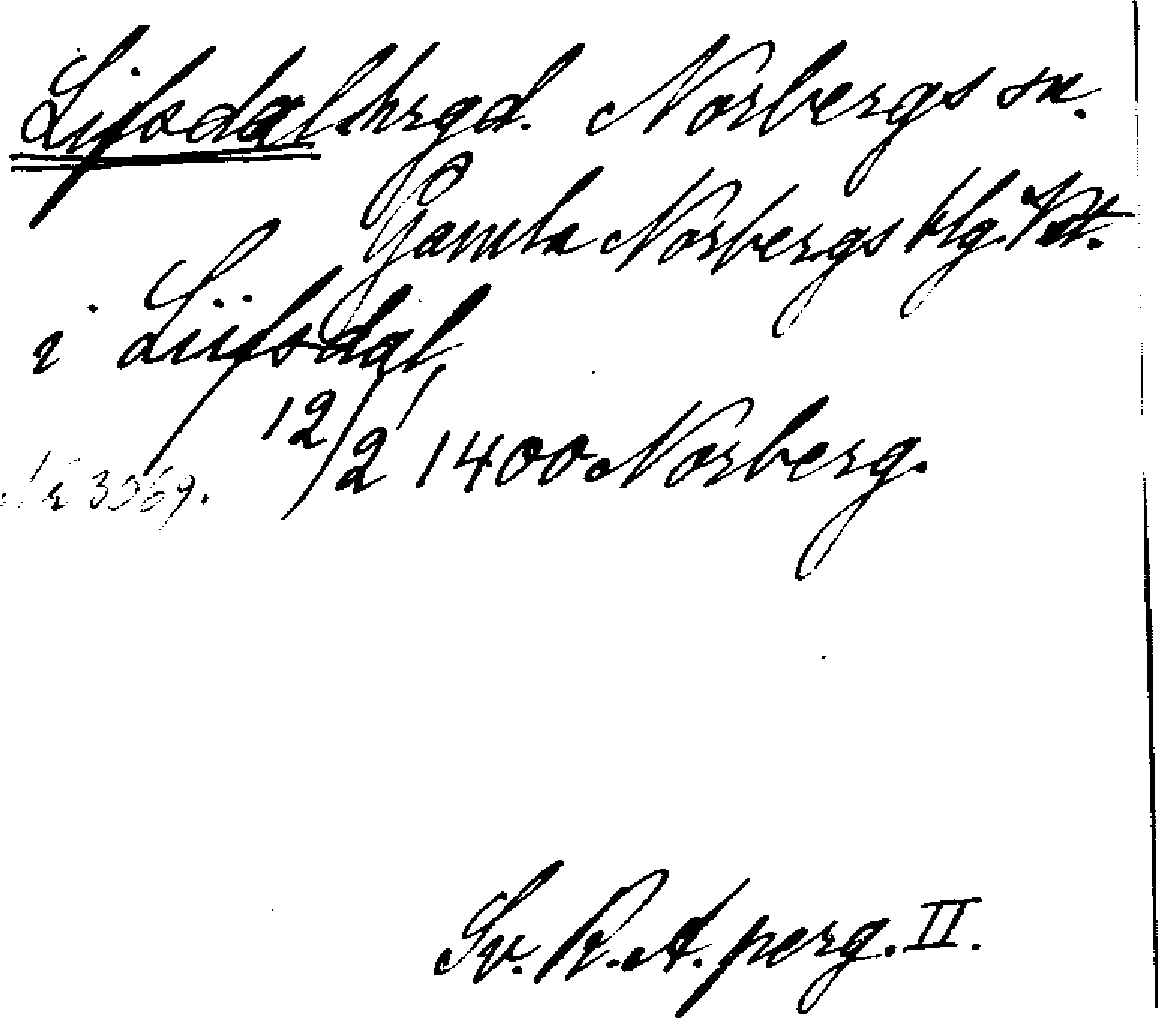 Lifsdal hrgd. Norbergs sn.
Gamla Norbergs blg. Vstm.
i Liifsdal
12/2 1400 Norberg.
Nr 3069.
Sv. R. A. perg. II.